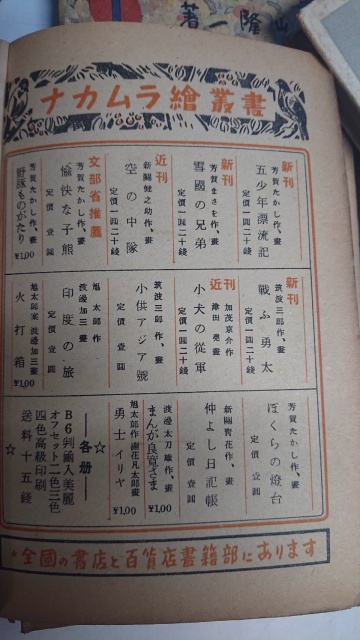 隆一著
ナカムラ繪叢書
新刊
芳賀たかし作、畫
五少年漂流記
定價一圓二十錢
新刊
芳賀まさを作、畫
雪國の兄弟
定價一圓二十錢
近刊
新關健之助作、畫
空の中隊
定價一圓二十錢
文部省推薦
芳賀たかし作、畫
愉快な子熊
定價壹圓
芳賀たかし作、畫
野豚ものがたり
¥1,00
新刊
筑波三郎作、畫
戰ふ勇太
定價一圓二十錢
近刊
加茂京介作
津田 畫
小犬の從軍
定價一圓二十錢
筑波三郎作、畫
小供アジア號
定價壹圓
旭太郎作
渡邊加三畫
印度の旅
定價壹圓
旭太郎案 渡邊加三畫
火打箱
¥1,00
芳賀たかし作、畫
ぼくらの燈台
定價壹圓
新關靑花作、畫
仲よし日記帳
定價壹圓
渡邊太刀雄作、畫
まんが良寛さま
¥1,00
旭太郎作 謝花凡太郎畫
勇士イリヤ
¥1,00
☆
各册
B6判凾入美麗
オフセット二色三色
四色高級印刷
送料十五錢
☆
★全國の書店と百貨店書籍部にあります